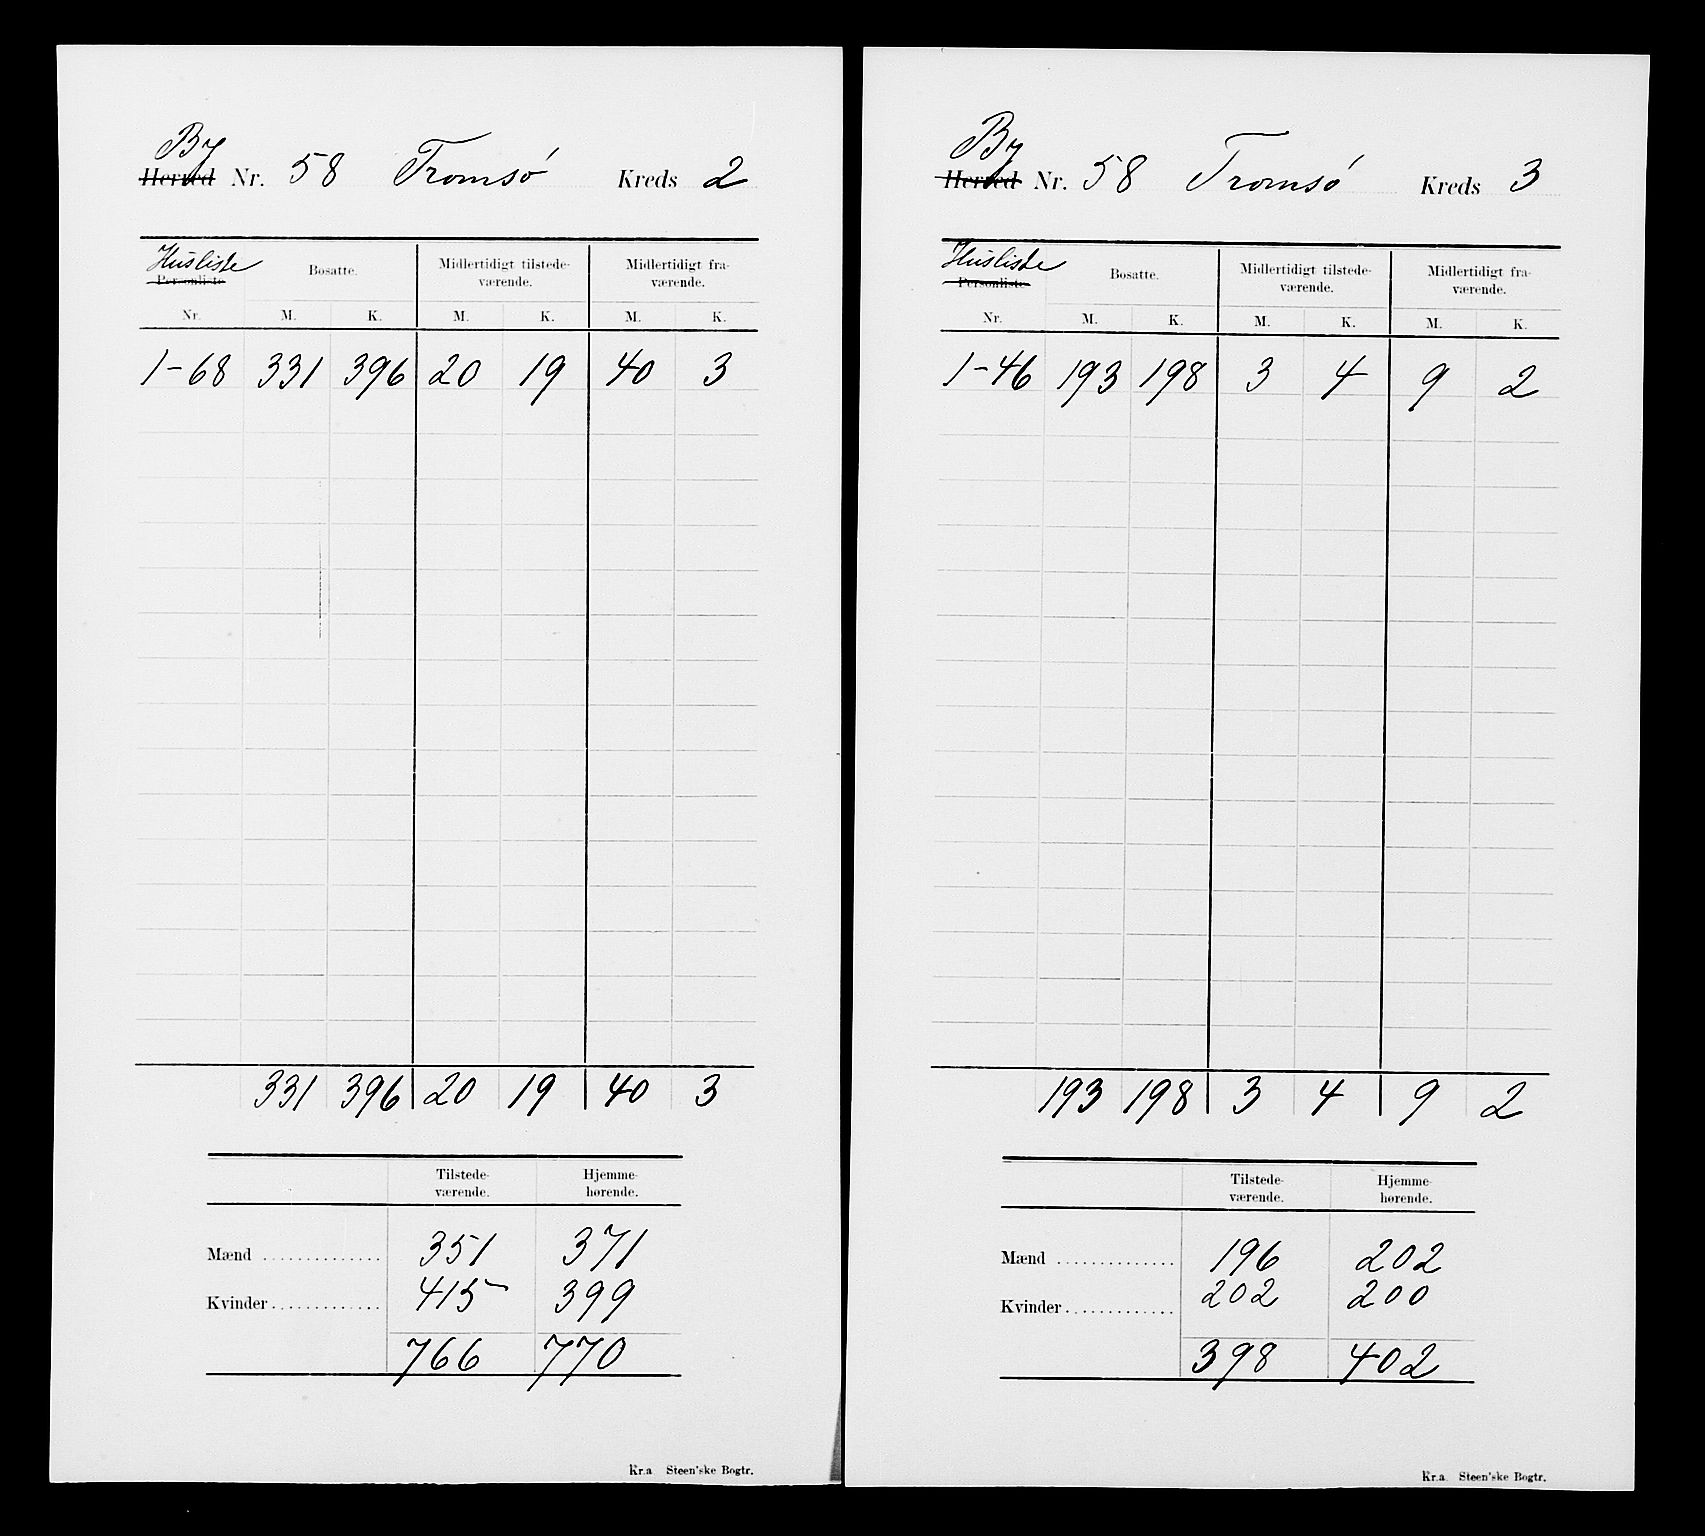 By
Herred Nr. 58 Tromsø Kreds 2
Husliste
Personliste Bosatte. Midlertidigt tilstede-værende. Midlertidigt fra-værende.
Nr. M. K. M. K. M. K.
1-68 331 396 20 19 40 3
331 396 20 19 40 3
Tilstede-værende. Hjemme-hørende.
Mænd .............. 351 371
Kvinder............. 415 399
766 770
Kr.a Steen'ske Bogtr.
By
Herred Nr. 58 Tromsø Kreds 3
Husliste
Personliste Bosatte. Midlertidigt tilstede-værende. Midlertidigt fra-værende.
Nr. M. K. M. K. M. K.
1-46 193 198 3 4 9 2
193 198 3 4 9 2
Tilstede-værende. Hjemme-hørende.
Mænd .............. 196 202
Kvinder............. 202 200
398 402
Kr.a Steen'ske Bogtr.